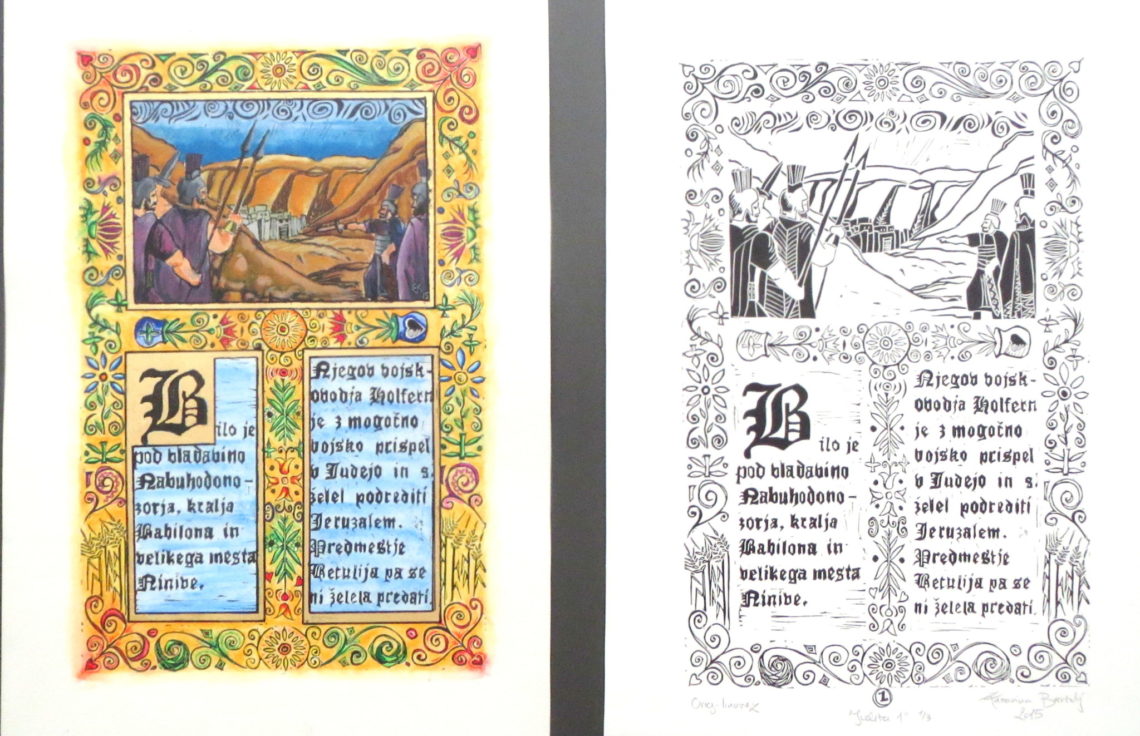 Bilo je
pod vladavino
Nabuhodono-
zorja, kralja
Babilona in
velikega mesta
Ninive.
Njegov vojsk-
ovodja Holfern
je z mogočno
vojsko prispel
v Judejo in s.
želel podrediti
Jeruzalem.
Predmestje
Betulija pa se
ni želela predati.
Bilo je
pod vladavino
Nabuhodono-
zorja, kralja
Babilona in
velikega mesta
Ninive.
Njegov vojsk-
ovodja Holfern
je z mogočno
vojsko prispel
v Judejo in s.
želel podrediti
Jeruzalem.
Predmestje
Betulija pa se
ni želela predati.
1
1/3
2015